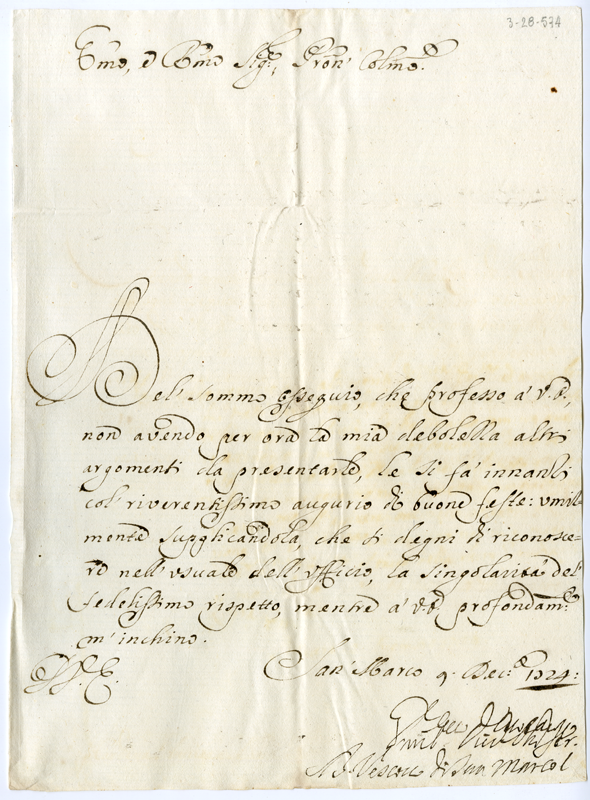 3-28-574
Emo, e Rmo Sig.r, Pron Colmo.
Del sommo osseguio, che professo a' V.E.,
non avendo per ora la mia debolezza altri
argomenti da presentarle, le si fa' innanzi
col riverentissimo augurio di buone feste: umil=
mente supplicandola, che si degni di riconosce=
re nell'usuale dell'Ufficio, la singolarità del
fedelissimo rispetto, mentre a' V.E. profondam.e
m'inchino.
San Marco 9. Dec.e 1724:
V.E.
Vescovo di San Marco